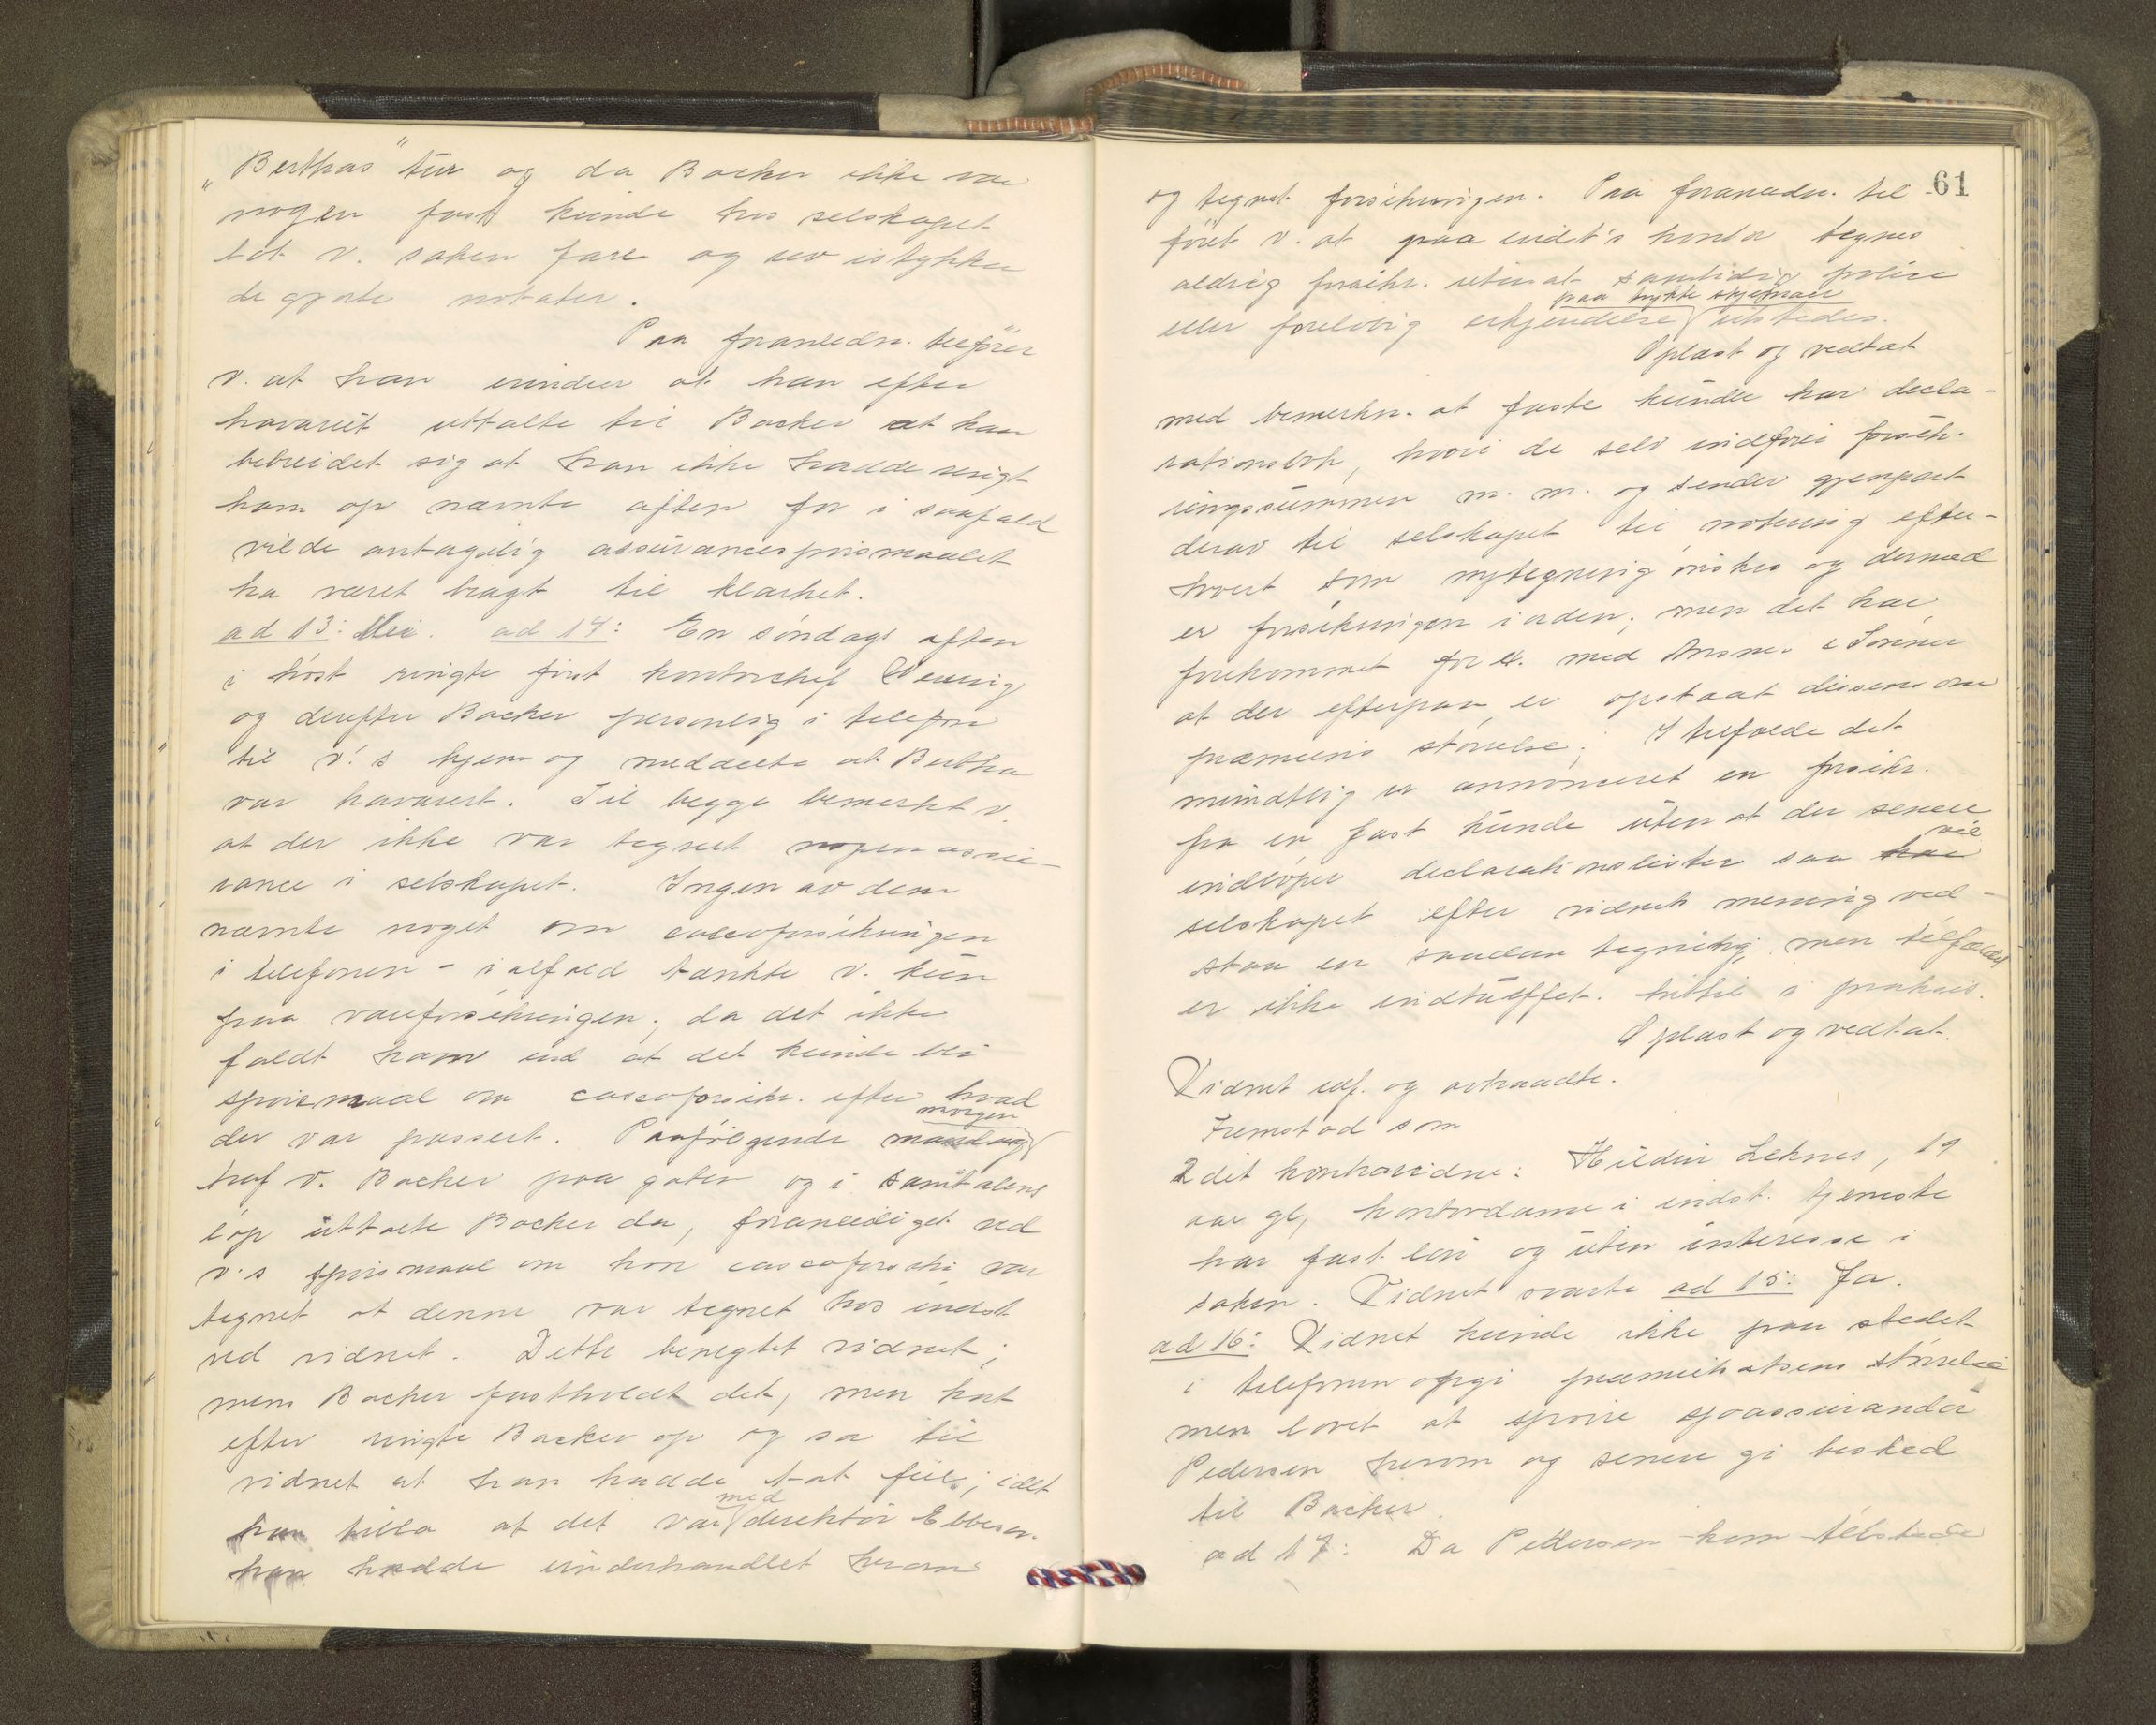 „Berthas" tur og da Backer ikke var
nogen fast kunde hos selskapet
lot v. saken fare og rev istykker
de gjorte notater.
Paa foranledn. tilføier
v. at han erindrer at han efter
havariet uttalte til Backer at han
bebreidet sig at han ikke hadde ringt
ham op nævnte aften for i saafald
vilde antagelig assurancespørsmaalet
ha været bragt til klarhet.
ad 13: Nei. ad 14: En søndags aften
i høst ringte først kontorchef
og derefter Backer personlig i telefon
til v.'s hjem og meddelte at Bertha
var havarert. Til begge bemerket v.
at der ikke var tegnet nogen assu-
rance i selskapet. Ingen av dem
nævnte noget om cascoforsikringen
i telefonen - ialfald tænkte v. kun
paa vareforsikringen; da det ikke
faldt ham ind at det kunde bli
spørsmaal om cascoforsikr. efter hvad
der var passert. Paafølgende mandag morgen
traf v. Backer paa gaten og i samtalens
løp uttalte Backer da, foranlediget ved
v.'s spørsmaal om hvor cascoforsikr. var
tegnet at denne var tegnet hos indst.
ved vidnet. Dette benegtet vidnet;
men Backer fastholdt det, men kort
efter ringte Backer op og sa til
vidnet at han hadde tat feil; idet
han tilla at det var med direktør Ebbesen
han hadde underhandlet herom
61
og tegnet forsikringen. Paa foranledn. til-
føiet v. at paa indst's kontor tegnes
aldrig forsikr. uten at samtidig police
eller foreløbig erkjendelse paa trykte skjemaer utstedes.
Oplæst og vedtat
med bemerkn. at faste kunder har decla-
rationsbok, hvori de selv indfører forsik-
ringssummen m. m. og sender gjenpart
derav til selskapet til notering efter-
hvert som nytegning ønskes og dermed
er forsikringen i orden; men det har
forekommet for ex. med & Sønner
at der efterpaa er opstaat dissens om
præmiens størrelse. I tilfælde det
mundtlig er annonceret en forsikr.
fra en fast kunde uten at der senere
indløper declarationslister saa har vil
selskapet efter vidnets mening ved-
staa en saadan tegning, men tilfældet
er ikke indtruffet hittil i praksis.
Oplæst og vedtat.
Vidnet edf. og avtraadte.
Fremstod som
2det kontravidne: Hildur Leknes, 19
aar gl, kontordame i indst. tjeneste
har fast løn og uten interesse i
saken. Vidnet svarte ad 15: Ja.
ad 16: Vidnet kunde ikke paa stedet
i telefonen opgi præmiesatsens størrelse
men lovet at spørre sjøassurandør
Pedersen herom og senere gi besked
til Backer.
ad 17: Da Pedersen kom tilstede